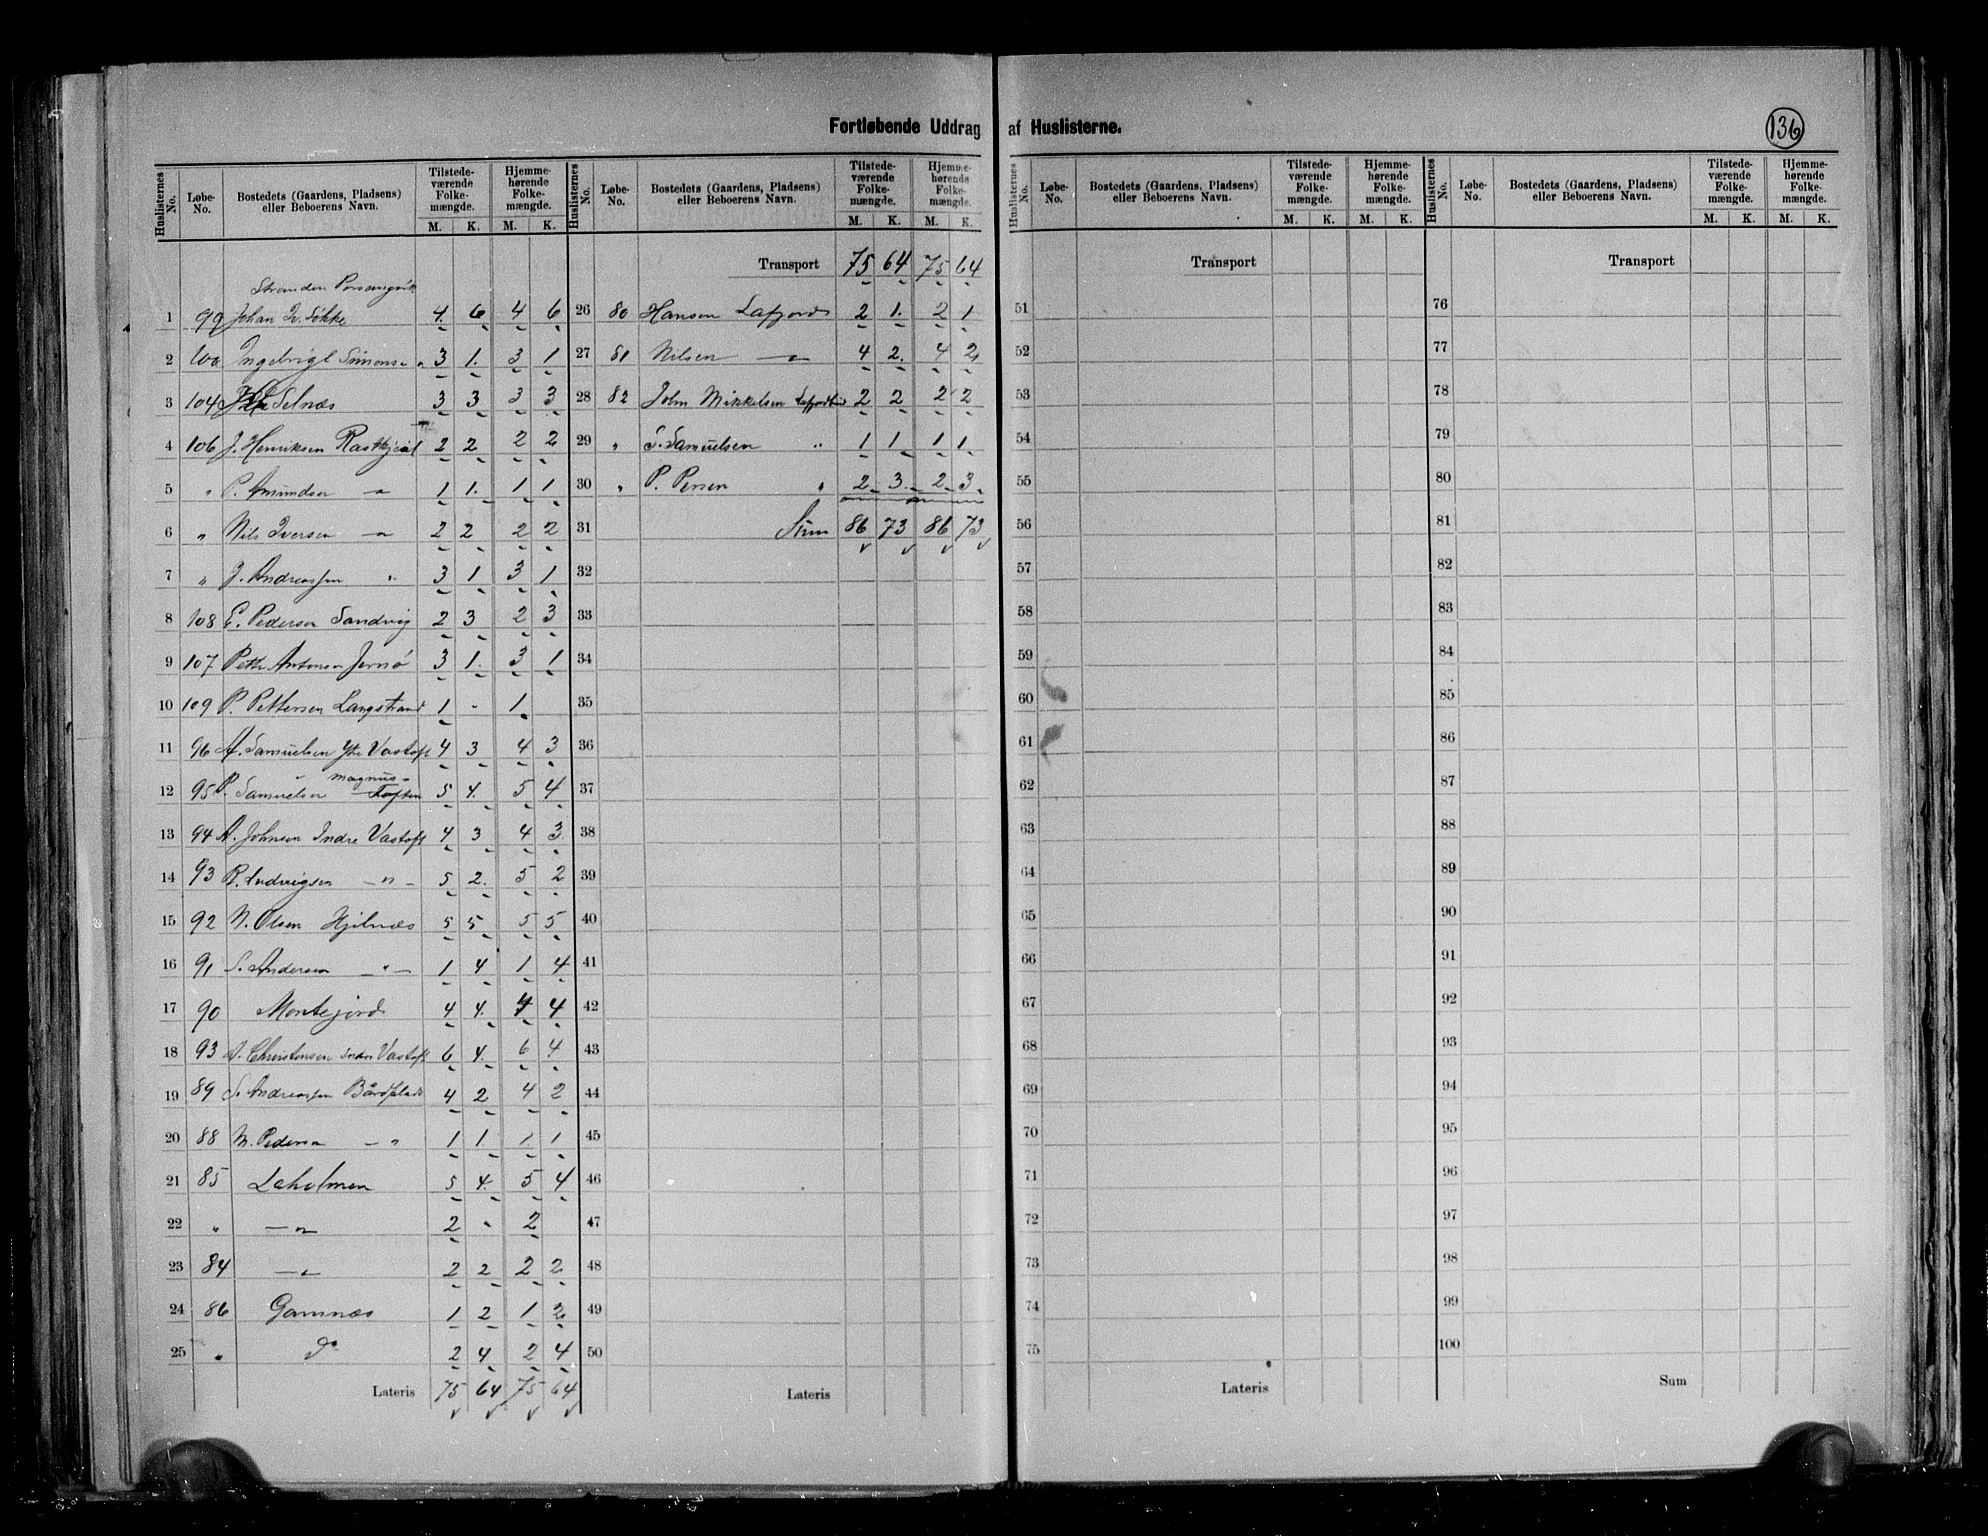 Fortløbende Uddrag af Huslisterne.
136
Huslisternes No. Løbe-No. Bostedets (Gaardens, Pladsen) eller Beboerens Navn. Tilstedeværende Folkemængde. M. K. Hjemmehørende Folkemængde. M. K.
Stranden Porsangvik
1 99 Johan 4 6 4 6
2 100 Ingebrigt Simonsen 3 1. 3 1
3 104 Selnæs 3 3 3 3
4 106 J. Henriksen 2 2 2 2
5 " P. Amundsen —"— 1 1. 1 1
6 " Nils Iversen —"— 2 2 2 2
7 " J. Andreassen " 3 1 3 1
8 108 E. Pedersen Sandvig 2 3 2 3
9 107 Peth Antonsen Jernø 3 1. 3 1
10 109 P. Pettersen Langstrand 1 - 1
11 96 A. Samuelsen Ytre Vastoft 4 3 4 3
12 95 P. Samuelsen magnus- Toften 5 4. 5 4
13 94 A. Johnsen Indre Vastoft 4 3 4 3
14 93 R. Ludvigsen —"— 5 2. 5 2
15 92 N. Olsen Hjelnæs 5 5 5 5
16 91 S. Andersen —"— 1 4 1 4
17 90 4 4. 4 4
18 93 A. Christensen Indre Vastoft 6 4. 6 4
19 89 S. Andreassen 4 2 4 2
20 88 N. Pedersen —" 1 1. 1 1
21 85 Leholmen 5 4. 5 4
22 " —"— 2 - 2
23 84 —"— 2 2 2 2
24 86 Gamnæs 1 2 1 2
25 " Do 2 4 2 4
Lateris 75 64 75 64
Huslisternes No. Løbe-No. Bostedets (Gaardens, Pladsen) eller Beboerens Navn. Tilstedeværende Folkemængde. M. K. Hjemmehørende Folkemængde. M. K.
Transport 75 64 75 64
26 80 Hansen Lafjord 2 1. 2 1
27 81 Nilsen —"— 4 2. 4 2
28 82 John Mikkelsen 2 2 2 2
29 " S. Samuelsen " 1 1 1 1.
30 " P. Persen " 2 3. 2 3.
31 Sum 86 73 86 73
32
33
34
35
36
37
38
39
40
41
42
43
44
45
46
47
48
49
50
Lateris
Huslisternes No. Løbe-No. Bostedets (Gaardens, Pladsen) eller Beboerens Navn. Tilstedeværende Folkemængde. M. K. Hjemmehørende Folkemængde. M. K.
Transport
51
52
53
54
55
56
57
58
59
60
61
62
63
64
65
66
67
68
69
70
71
72
73
74
75
Lateris
Huslisternes No. Løbe-No. Bostedets (Gaardens, Pladsen) eller Beboerens Navn. Tilstedeværende Folkemængde. M. K. Hjemmehørende Folkemængde. M. K.
Transport
76
77
78
79
80
81
82
83
84
85
86
87
88
89
90
91
92
93
94
95
96
97
98
99
100
Sum